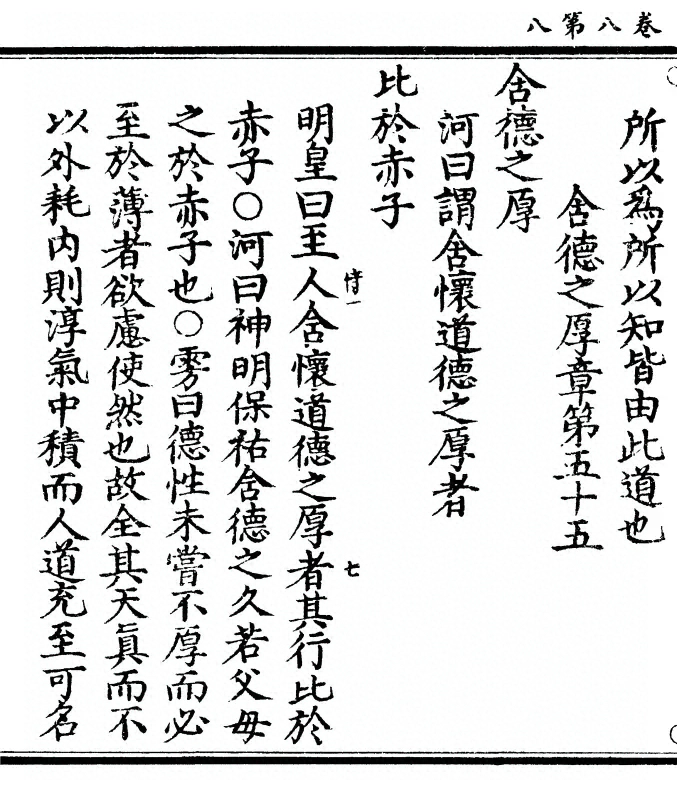 卷八第八
所以爲所以知皆由此道也
含德之厚章第五十五
含德之厚
河曰謂含懷道德之厚者
比於赤子
明皇曰至人含懷道德之厚者其行比於
恃一
七
赤子○河曰神明保祐含德之久若父母
之於赤子也○雱曰德性未嘗不厚而必
至於薄者欲慮使然也故全其天眞而不
以外耗内則淳氣中積而人道充至可名